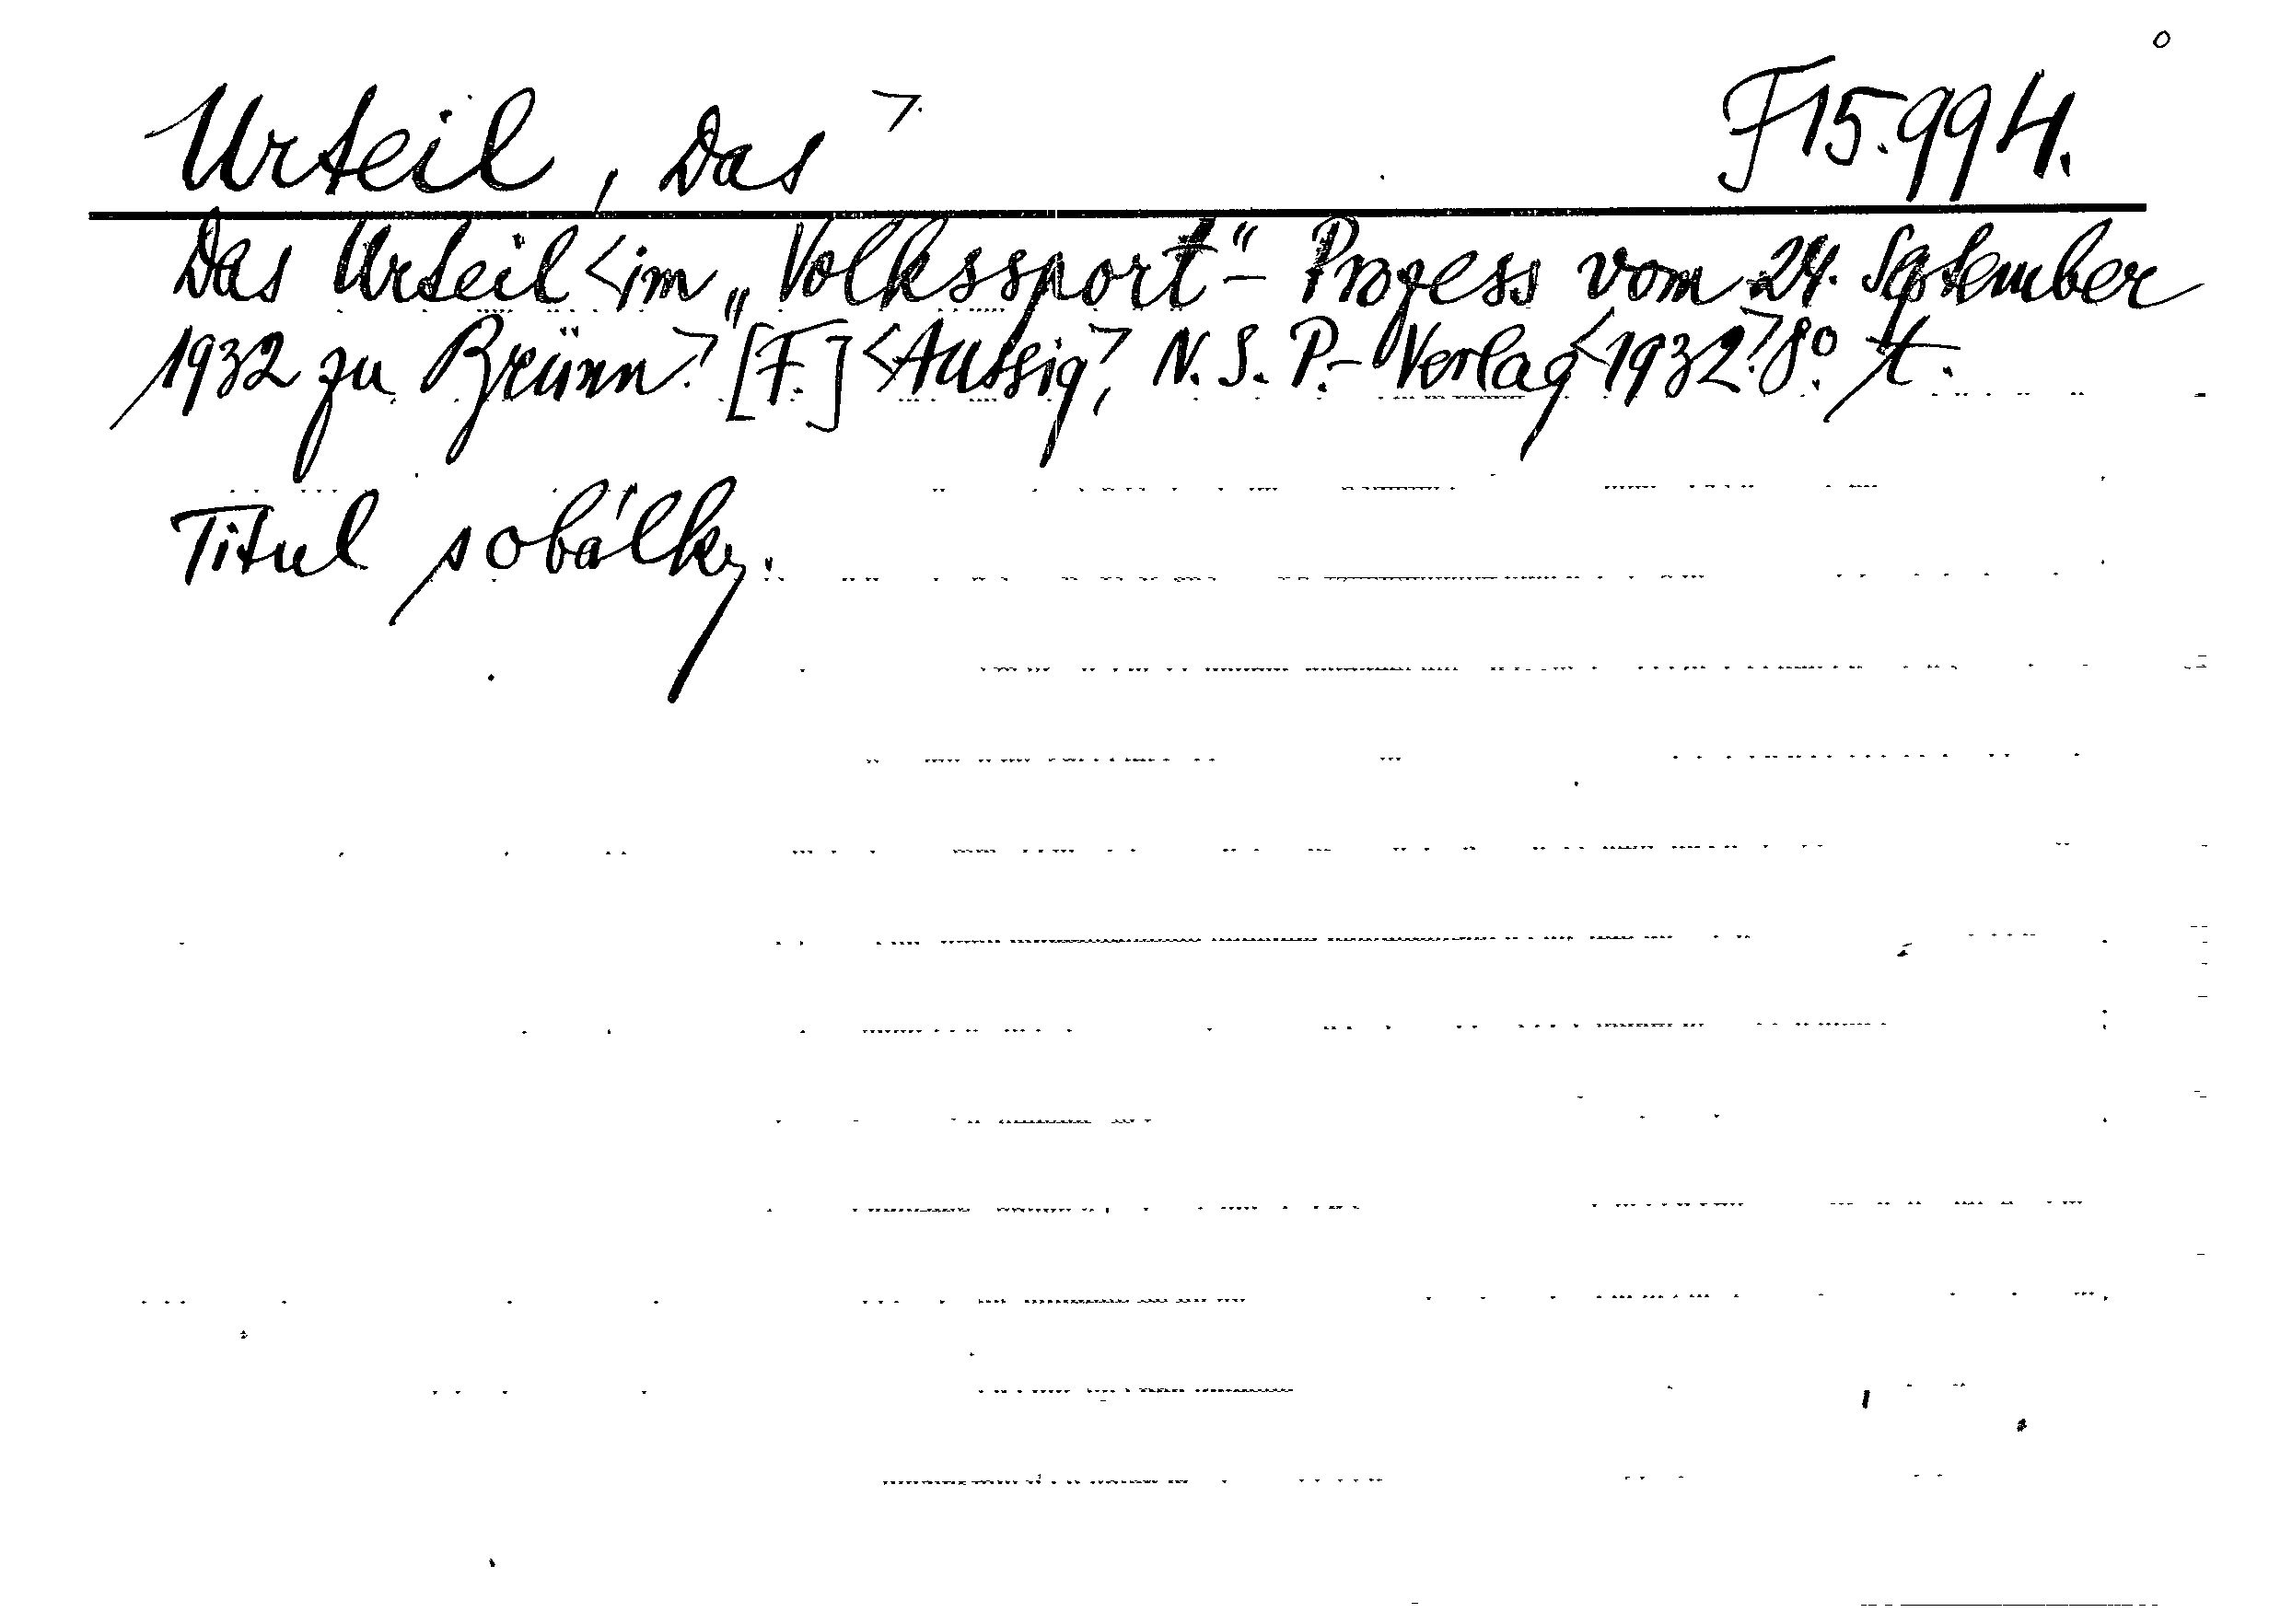 Urteil, Das > F 15.994.
Das Urteil <im „Volkssport“- Prozess vom 24. September
1932 zu Brünn.> [F.] <Aussig>, N. S. P.- Verlag <1932.> 8°. t.
Titul s obálky.